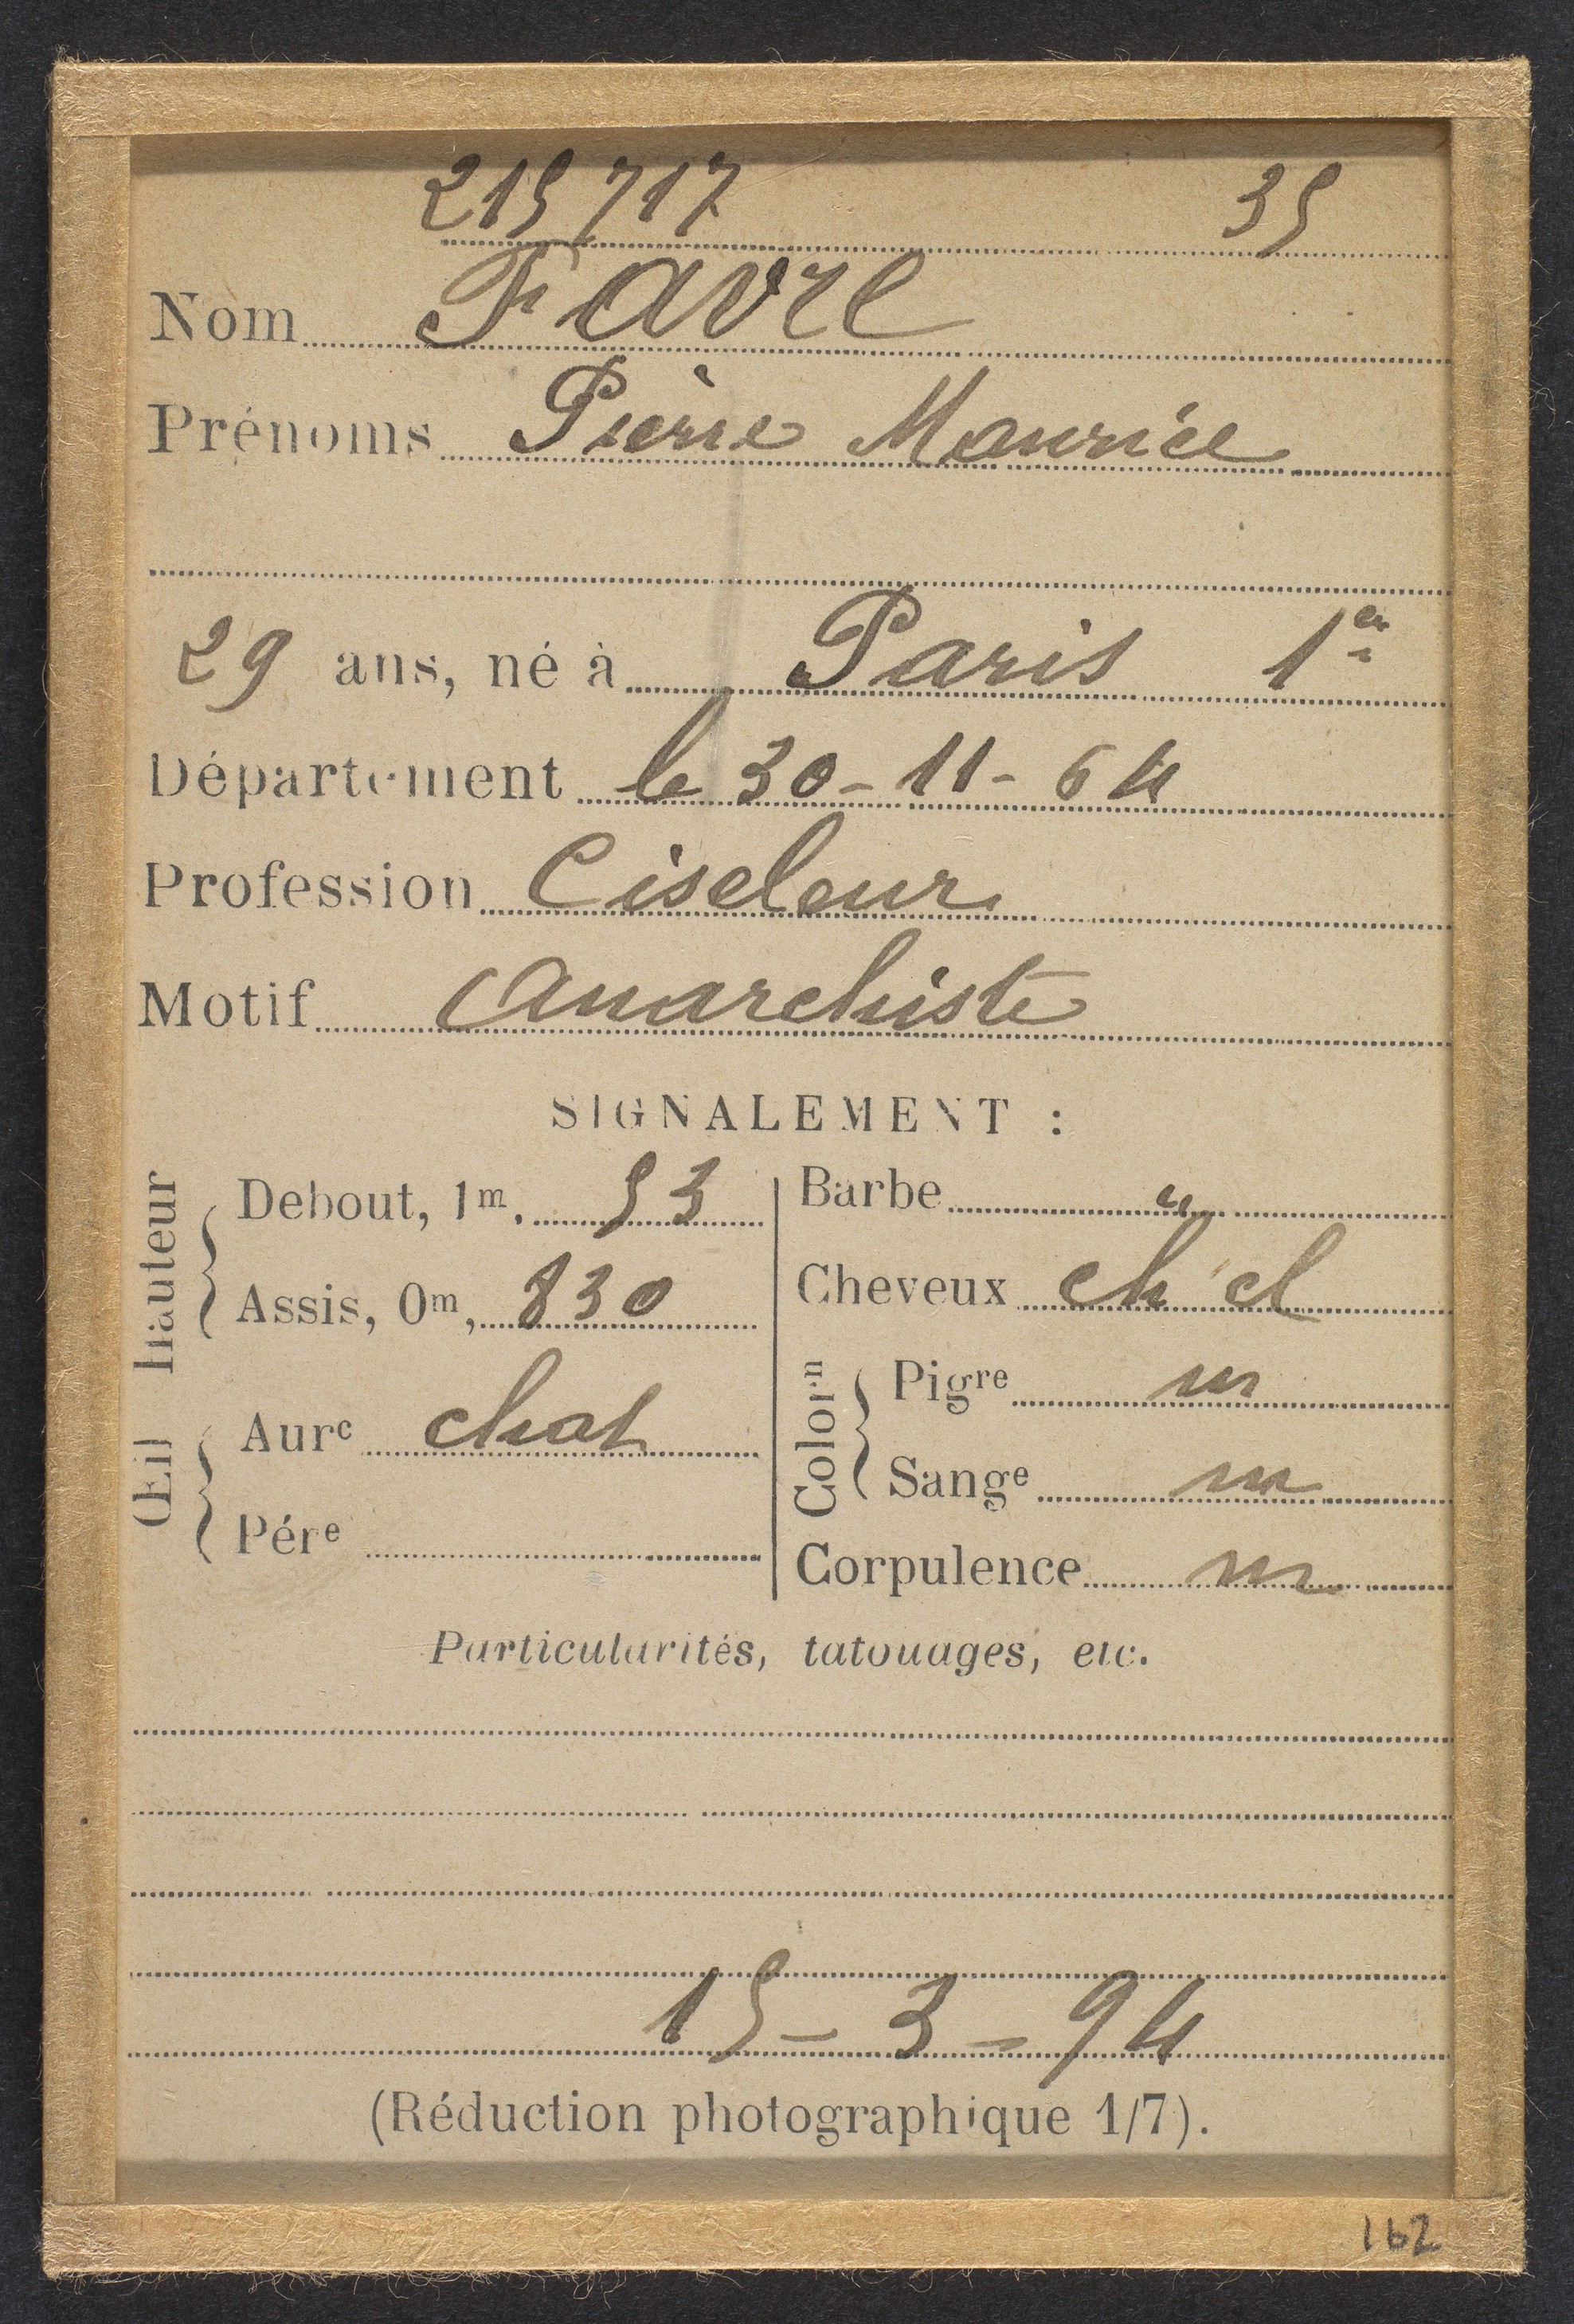 215 717 35
Nom Favre
Prénoms Pierre Maurice
29 ans, né à Paris 1er
Département le 30-11-64
Profession Ciseleur
Motif Anarchiste
SIGNALEMENT :
Hauteur
Debout, 1m, 53
Assis, 0m, 830
Œil
Aurc chat
Pére
Barbe
Cheveux ch cl
Colorn
Pigre m
Sange m
Corpulence m
Particularités, tatouages, etc.
15-3-94
(Réduction photographique 1/7).
162